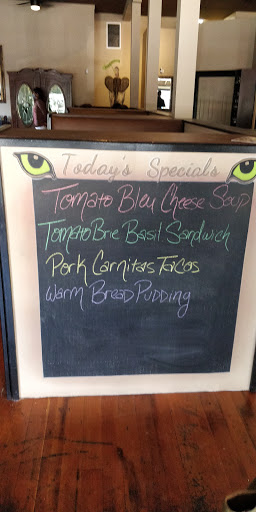 Today's Specials
Tomato Bleu Cheese Soup
Tomato Brie Basil Sandwich
Pork Carnitas Tacos
Warm Bread Pudding